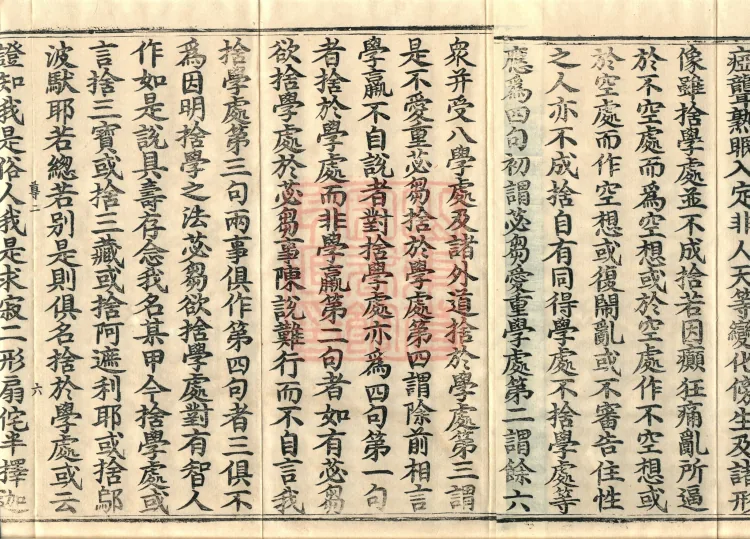 瘂聾熟眠入定非人天等變化傍生及諸形
像雖捨學處並不成捨若因癲狂痛亂所逼
於不空處而爲空想或於空處作不空想或
於空處而作空想或復鬧亂或不審告住性
之人亦不成捨自有同得學處不捨學處等
應爲四句初謂苾芻愛重學處第二謂餘六
衆并受八學處及諸外道捨於學處第三謂
是不愛重苾芻捨於學處第四謂除前相言
學羸不自說者對捨學處亦爲四句第一句
者捨於學處而非學羸第二句者如有苾芻
欲捨學處於苾芻事陳說難行而不自言我
捨學處第三句兩事俱作第四句者三俱不
爲因明捨學之法苾芻欲捨學處對有智人
作如是說具壽存念我名某甲今捨學處或
言捨三寶或捨三藏或捨阿遮利耶或捨鄔
波馱耶若總若別是則俱名捨於學處或云
尊二 六
證知我是俗人我是求寂二形扇侘半擇迦